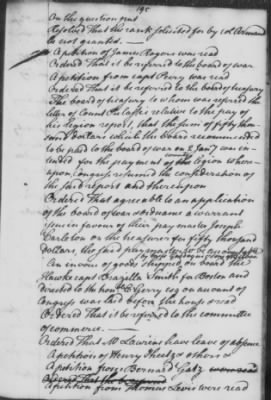 195
On the question put
Resolved That the rank solicited for by col. Armand
be not granted —
A petition of James Rogers was read
Ordered That it be referred to the board of war
A petition from capt Perry was read
Ordered That it be referred to the board of treasury
The board of treasury to whom was referred the
letter of Count Pulaski relative to the pay of
his legion report, that the sum of fifty thou-
sand dollars which the board recommended
to be paid to the board of war on 2 Jany was in-
tended for the payment of the legion where-
upon Congress resumed the consideration of
the said report and thereupon
Ordered That agreeable to an application
of the board of war & ordnance a warrant
issue in favour of their pay master Joseph
Carleton on the treasurer for fifty thousand
dollars the said
An invoice of goods shipped on board the
Hawke capt Brazilla Smith for Boston and
directed to the honble E Gerry esq on account of
Congress was laid before the house & read
Ordered That it be referred to the committee
of commerce. —
Ordered That Mr Laurens have leave of absence
A petition of Henry Sheetz & others
A petition from Bernard Gatz was read
Ordered That the
A petition from Thomas Levis were read